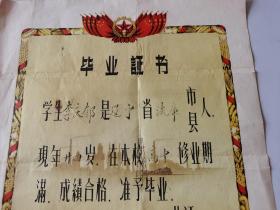 毕业証书
学生李文郁是辽宁省沈阳市县人.
現年廿四岁.在本校高中修业期
滿.成績合格.准予毕业.